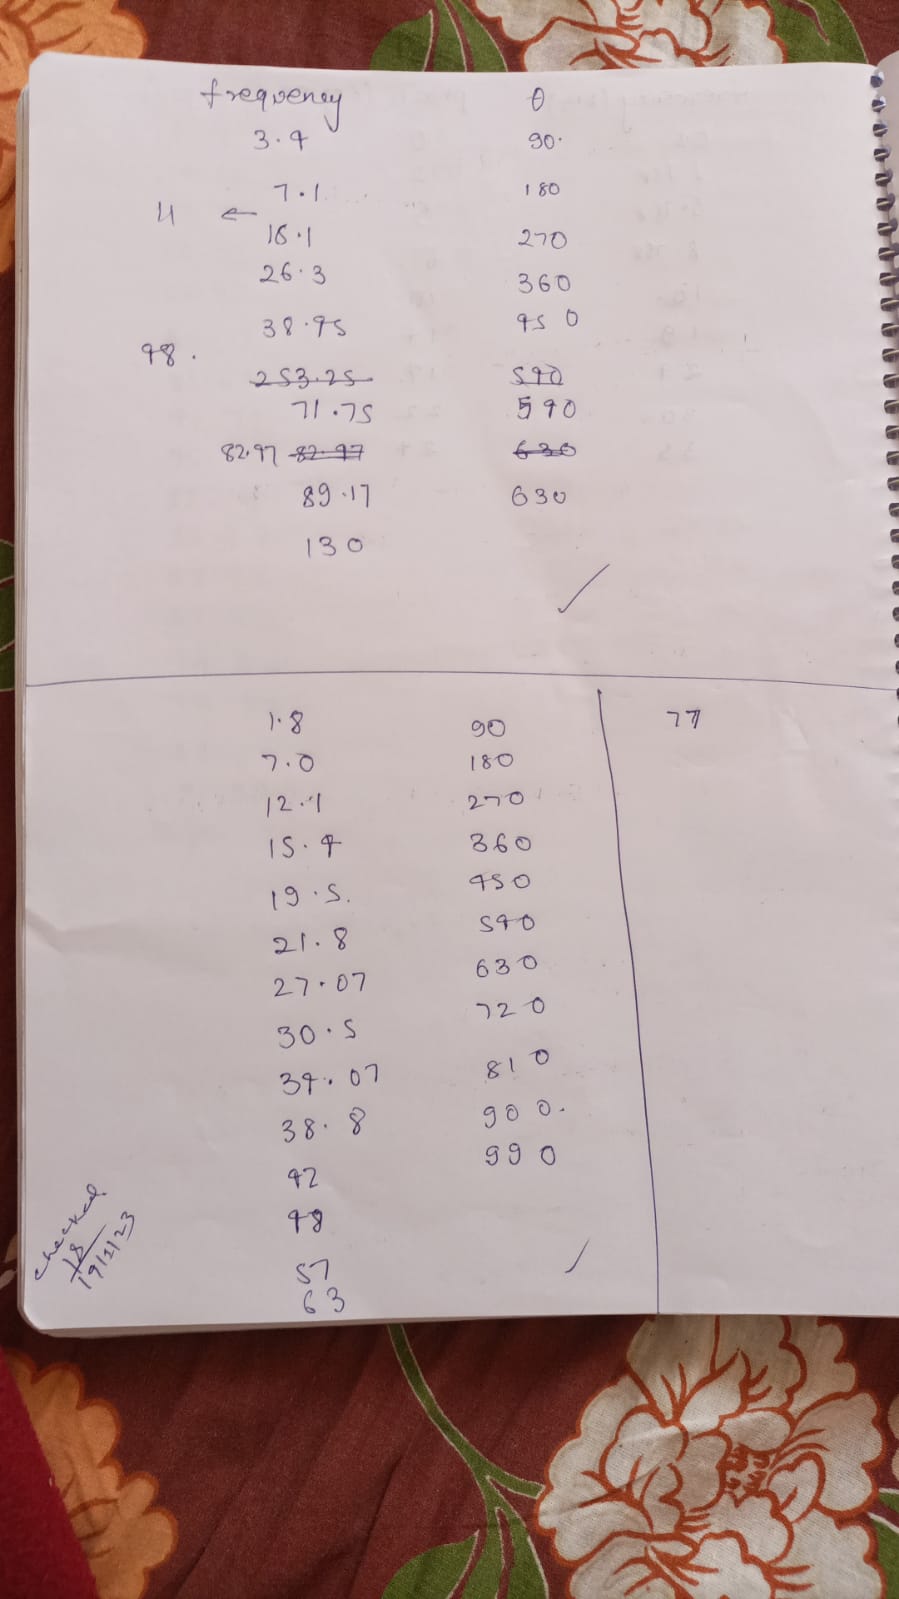 frequency θ
3.4 90.
7.1 180
11 ←
18.1 270
26.3 360
38.45 450
48.
253.25 540
71.75 540
82.97 82.97 630
89.17 630
130
1.8 90 77
7.0 180
12.1 270
15.4 360
19.5. 450
21.8 540
27.07 630
30.5 720
34.07 810
38.8 900.
42 990
48
57
63
checked
19/2/23